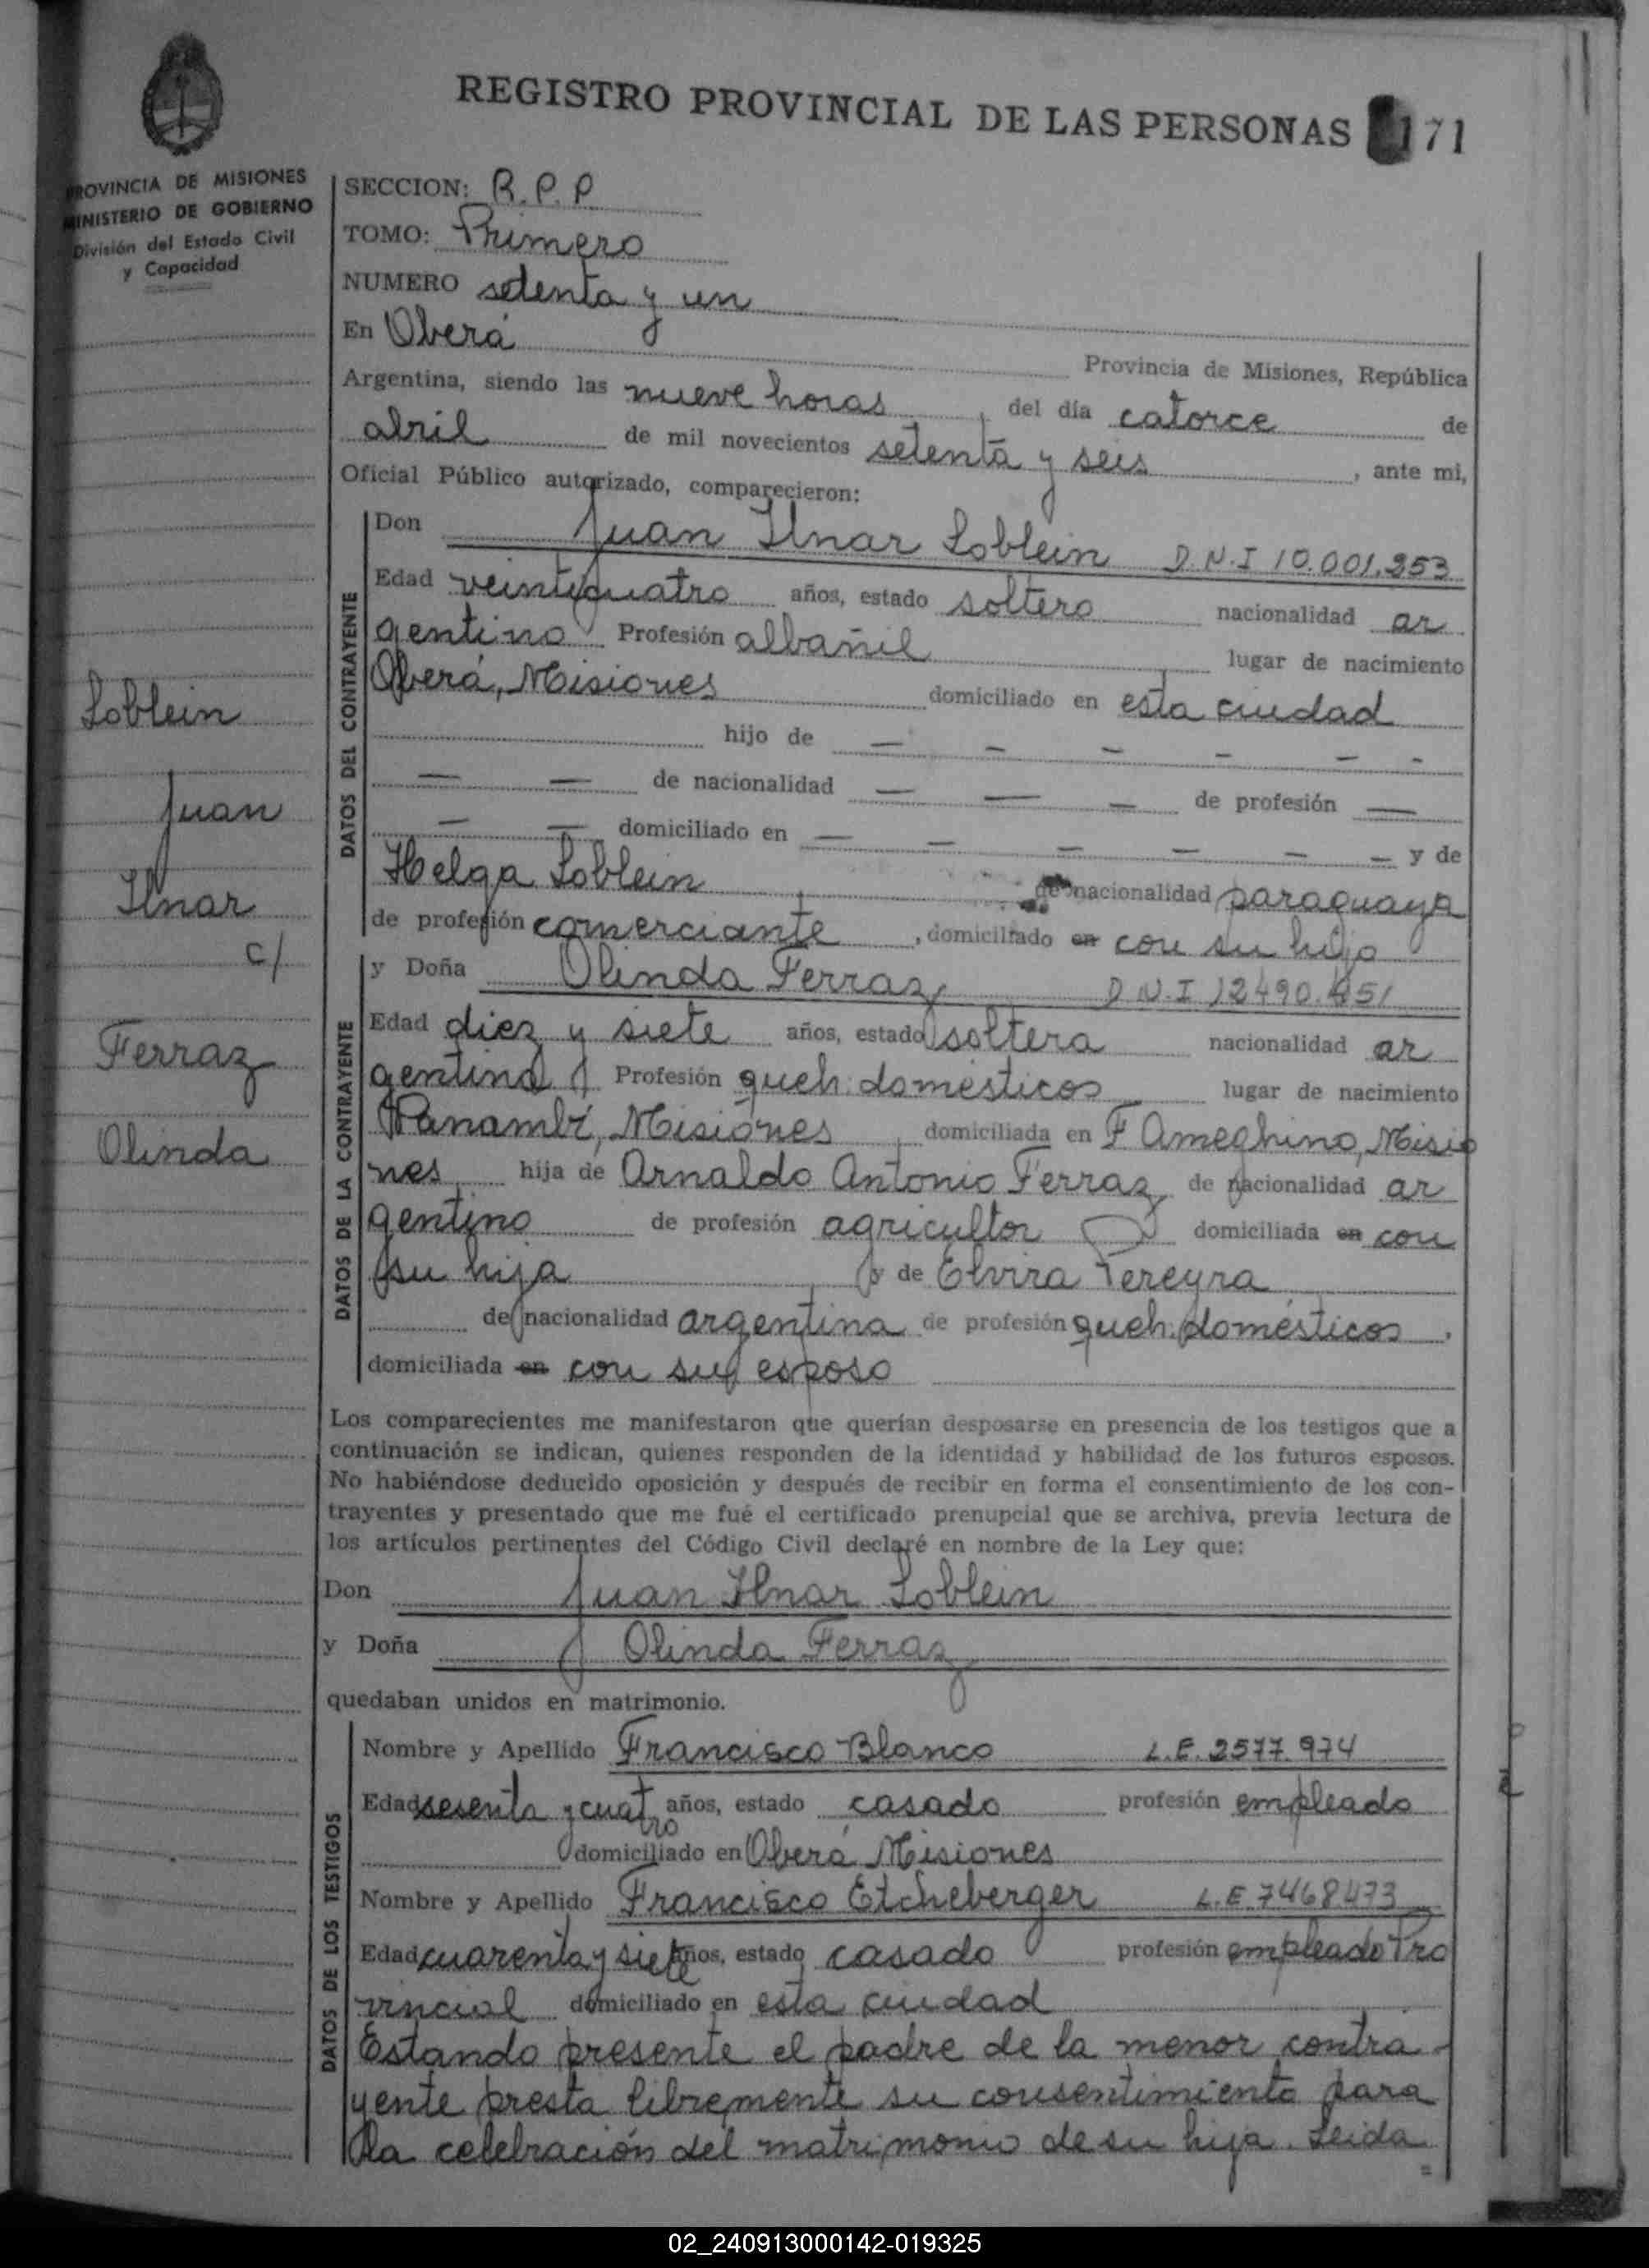 REGISTRO PROVINCIAL DE LAS PERSONAS 171
PROVINCIA DE MISIONES
MINISTERIO DE GOBIERNO
División del Estado Civil
y Capacidad
SECCION: R.P.P
TOMO: Primero
NUMERO setenta y un
En Oberá Provincia de Misiones, República
Argentina, siendo las nueve horas, del día catorce de
abril de mil novecientos setenta y seis, ante mi,
Oficial Público autorizado, comparecieron:
Loblein
Juan
Ilnar
c/
Ferraz
Olinda
DATOS DEL CONTRAYENTE
Don Juan Ilnar Loblein D.N.I 10.001.253
Edad veintiquatro años, estado soltero nacionalidad ar
gentino Profesión albañil lugar de nacimiento
Oberá, Misiones domiciliado en esta ciudad
hijo de — — — — — -
— — de nacionalidad — — — de profesión —
— — domiciliado en — — — — — — y de
Helga Loblein de nacionalidad paraguaya
de profesión comerciante, domiciliado en con su hijo
DATOS DE LA CONTRAYENTE
y Doña Olinda Ferraz D.N.I 12490.451
Edad diez y siete años, estado soltera nacionalidad ar
gentina Profesión queh. domésticos lugar de nacimiento
Panambí, Misiones, domiciliada en F Ameghino, Misio
nes hija de Arnaldo Antonio Ferraz de nacionalidad ar
gentino de profesión agricultor domiciliada en con
su hija y de Elvira Pereyra
de nacionalidad argentina de profesión queh. domésticos,
domiciliada en con su esposo
Los comparecientes me manifestaron que querían desposarse en presencia de los testigos que a
continuación se indican, quienes responden de la identidad y habilidad de los futuros esposos.
No habiéndose deducido oposición y después de recibir en forma el consentimiento de los con-
trayentes y presentado que me fué el certificado prenupcial que se archiva, previa lectura de
los artículos pertinentes del Código Civil declaré en nombre de la Ley que:
Don Juan Ilnar Loblein
y Doña Olinda Ferraz
quedaban unidos en matrimonio.
DATOS DE LOS TESTIGOS
Nombre y Apellido Francisco Blanco L.E. 2577.974
Edad sesenta y cuatro años, estado casado profesión empleado
domiciliado en Oberá Misiones
Nombre y Apellido Francisco Etcheberger L.E. 7468473
Edad cuarenta y siete años, estado casado profesión empleado Pro
vincial domiciliado en esta ciudad
Estando presente el padre de la menor contra-
yente presta libremente su consentimiento para
la celebración del matrimonio de su hija. Leida
02_240913000142-019325